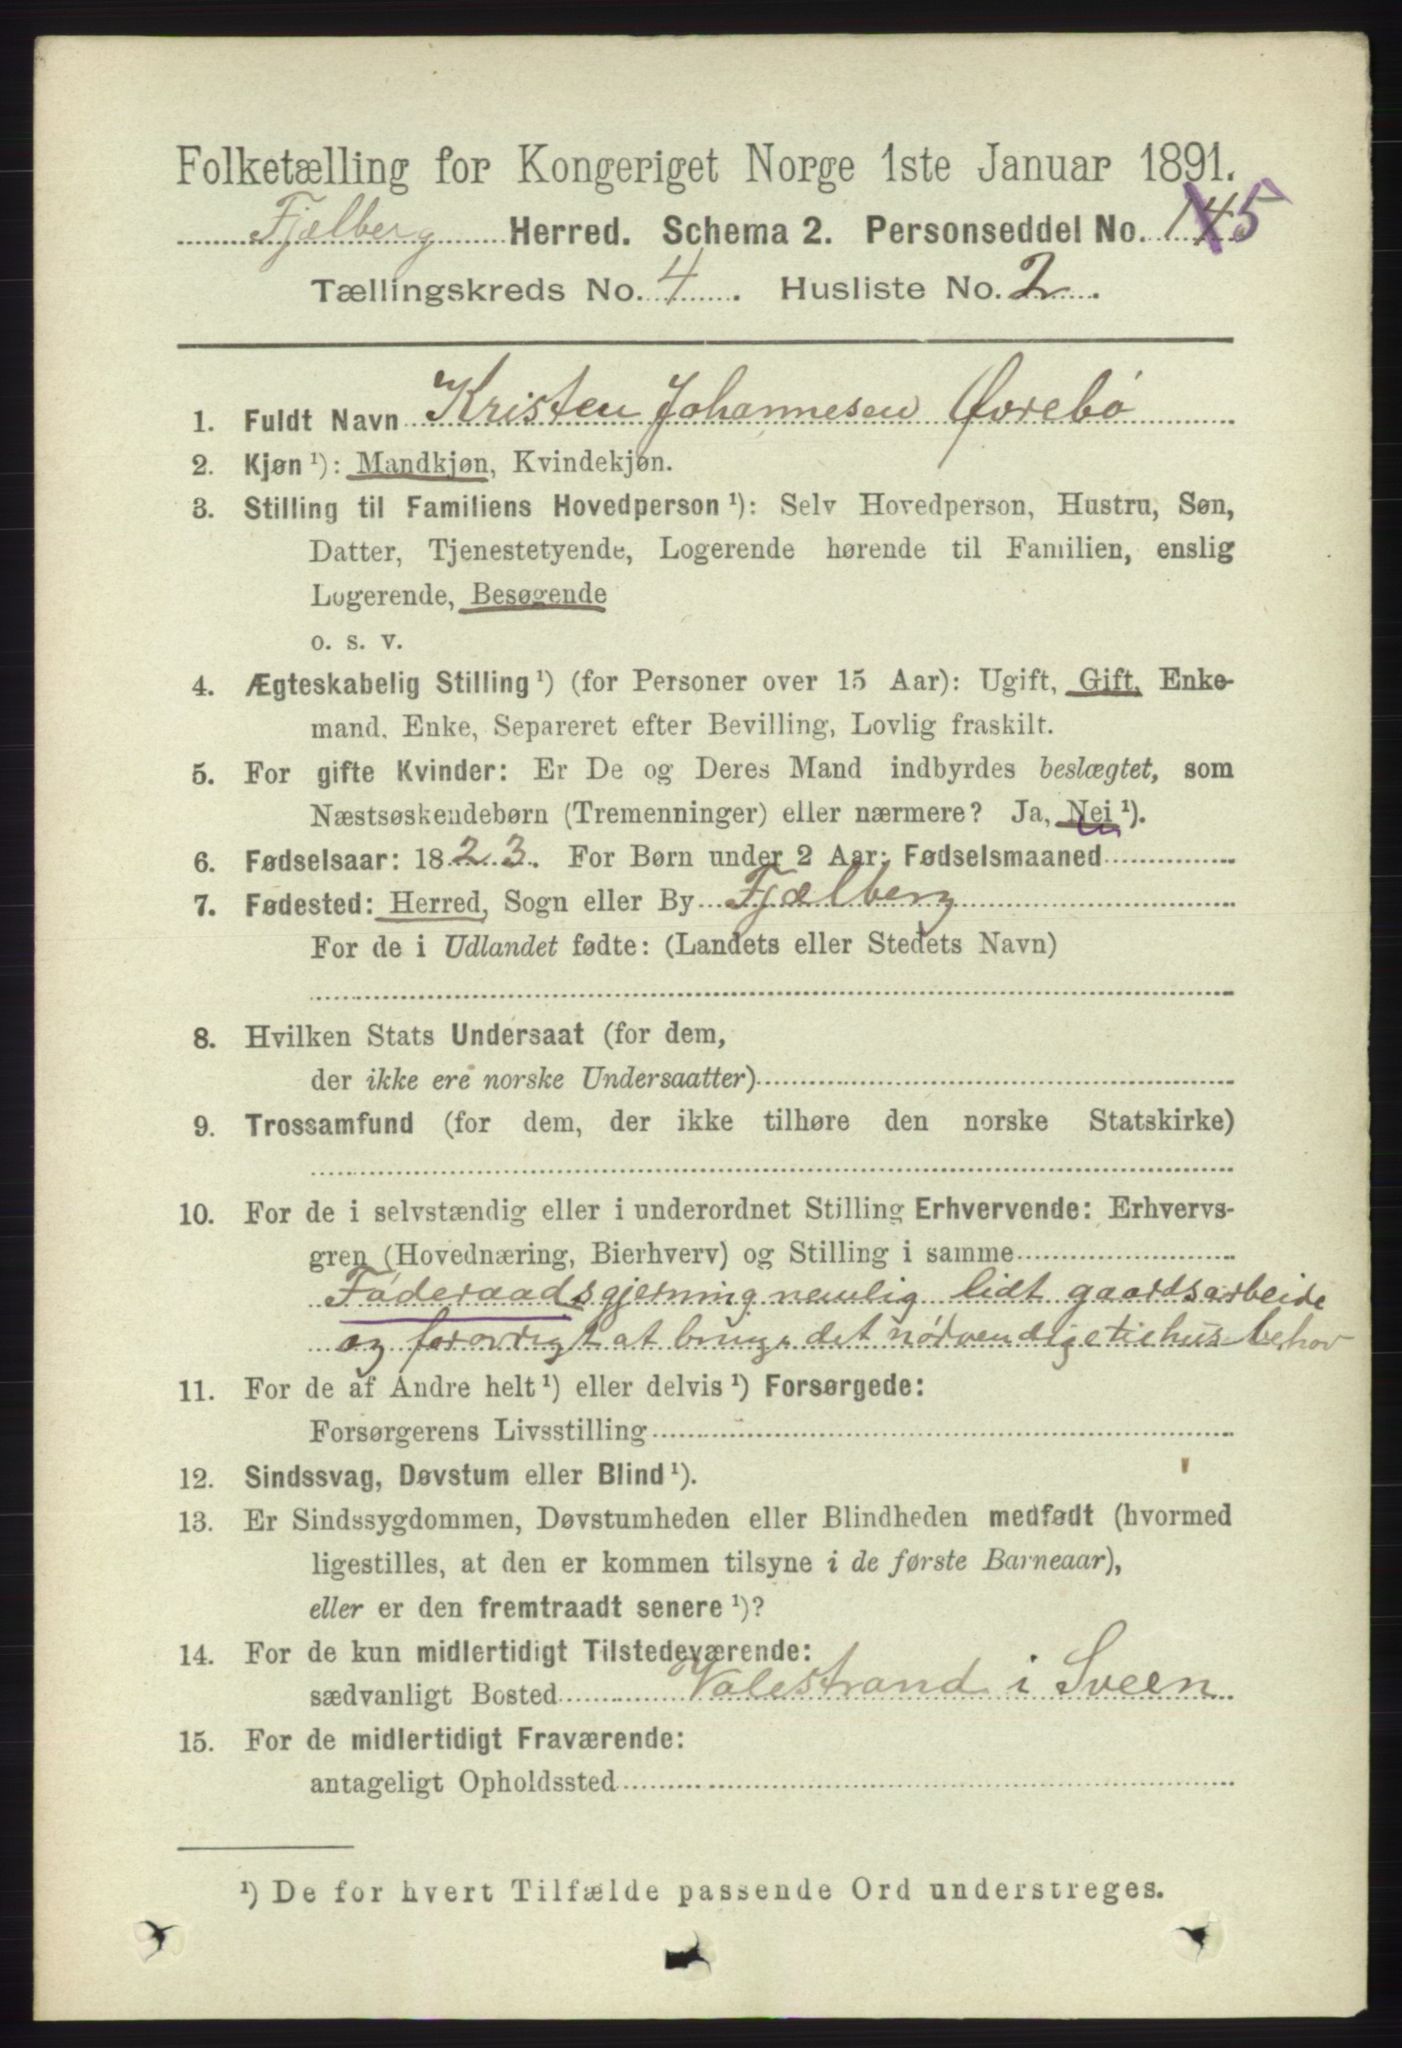 Folketælling for Kongeriget Norge 1ste Januar 1891.
Fjelberg Herred. Schema 2. Personseddel No. 145
Tællingskreds No. 4. Husliste No. 2.
1. Fuldt Navn Kristen Johannesen Øvrebø
2. Kjøn ¹): Mandkjøn, Kvindekjøn.
3. Stilling til Familiens Hovedperson ¹): Selv Hovedperson, Hustru, Søn,
Datter, Tjenestetyende, Logerende hørende til Familien, enslig
Logerende, Besøgende
o. s. v.
4. Ægteskabelig Stilling ¹) (for Personer over 15 Aar): Ugift, Gift, Enke-
mand, Enke, Separeret efter Bevilling, Lovlig fraskilt.
5. For gifte Kvinder: Er De og Deres Mand indbyrdes beslægtet, som
Næstsøskendebørn (Tremenninger) eller nærmere? Ja, Nei ¹).
6. Fødselsaar: 1823. For Børn under 2 Aar: Fødselsmaaned
7. Fødested: Herred, Sogn eller By Fjælberg
For de i Udlandet fødte: (Landets eller Stedets Navn)
8. Hvilken Stats Undersaat (for dem,
der ikke ere norske Undersaatter)
9. Trossamfund (for dem, der ikke tilhøre den norske Statskirke)
10. For de i selvstændig eller i underordnet Stilling Erhvervende: Erhvervs-
gren (Hovednæring, Bierhverv) og Stilling i samme
Føderaadsgjerning nemlig lidt gaardsarbeide
og forøvrigt at bruge det nødvendige til husbehov
11. For de af Andre helt ¹) eller delvis ¹) Forsørgede:
Forsørgerens Livsstilling
12. Sindssvag, Døvstum eller Blind ¹).
13. Er Sindssygdommen, Døvstumheden eller Blindheden medfødt (hvormed
ligestilles, at den er kommen tilsyne i de første Barneaar),
eller er den fremtraadt senere ¹)?
14. For de kun midlertidigt Tilstedeværende:
sædvanligt Bosted Valestrand i Sveen
15. For de midlertidigt Fraværende:
antageligt Opholdssted
¹) De for hvert Tilfælde passende Ord understreges.